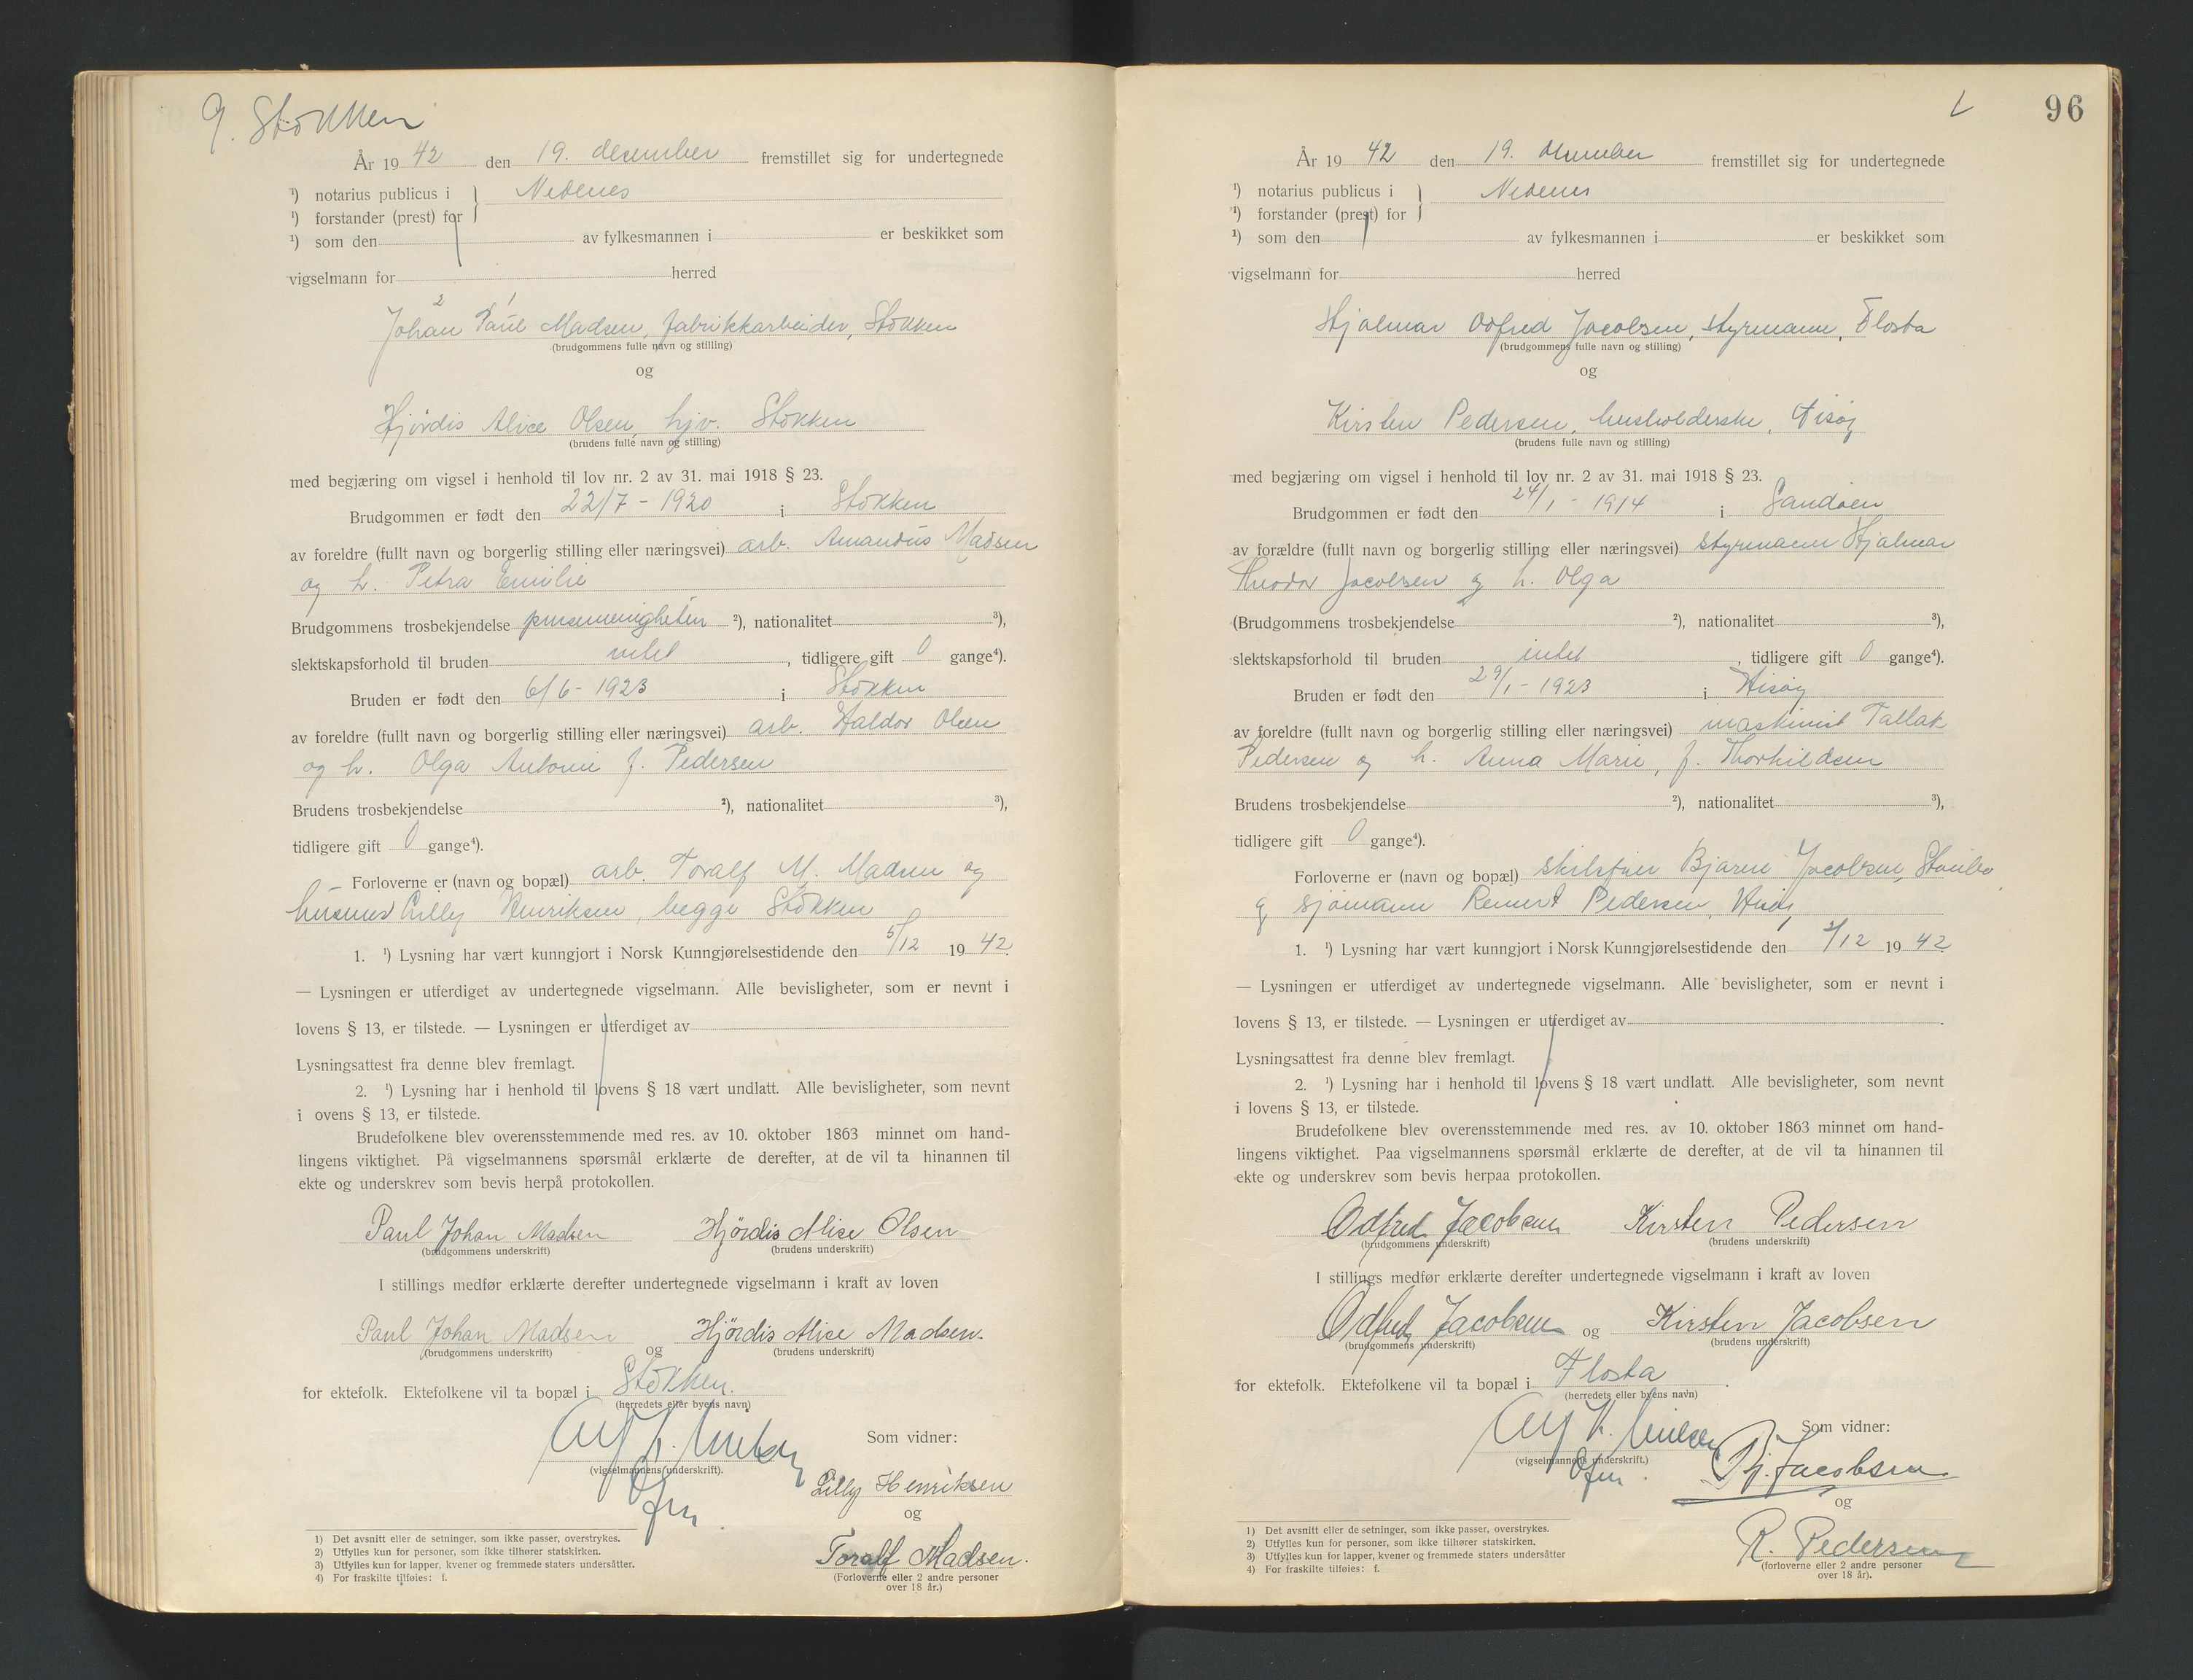 9. Stokken
År 1942 den 19. december fremstillet sig for undertegnede
¹) notarius publicus i } Nedenes
¹) forstander (prest) for
¹) som den av fylkesmannen i er beskikket som
vigselmann for herred
2 1
Johan Paul Madsen, fabrikkarbeider, Stokken
(brudgommens fulle navn og stilling)
og
Hjørdis Alice Olsen, hjv. Stokken
(brudens fulle navn og stilling)
med begjæring om vigsel i henhold til lov nr. 2 av 31. mai 1918 § 23.
Brudgommen er født den 22/7 - 1920 i Stokken
av foreldre (fullt navn og borgerlig stilling eller næringsvei) arb. Amandus Madsen
og h. Petra Emilie
Brudgommens trosbekjendelse pinsemenigheten ²), nationalitet ³),
slektskapsforhold til bruden intet, tidligere gift 0 gange⁴).
Bruden er født den 6/6 - 1923 i Stokken
av foreldre (fullt navn og borgerlig stilling eller næringsvei) arb. Haldor Olsen
og h. Olga Antonie f. Pedersen
Brudens trosbekjendelse ²), nationalitet ³),
tidligere gift 0 gange⁴).
Forloverne er (navn og bopæl) arb. Toralf M. Madsen og
Lilly Henriksen, begge Stokken
1. ¹) Lysning har vært kunngjort i Norsk Kunngjørelsestidende den 5/12 1942.
— Lysningen er utferdiget av undertegnede vigselmann. Alle bevisligheter, som er nevnt i
lovens § 13, er tilstede. — Lysningen er utferdiget av
Lysningsattest fra denne blev fremlagt.
2. ¹) Lysning har i henhold til lovens § 18 vært undlatt. Alle bevisligheter, som nevnt
i ovens § 13, er tilstede.
Brudefolkene blev overensstemmende med res. av 10. oktober 1863 minnet om hand-
lingens viktighet. På vigselmannens spørsmål erklærte de derefter, at de vil ta hinannen til
ekte og underskrev som bevis herpå protokollen.
Paul Johan Madsen Hjördis Alise Olsen
(brudgommens underskrift) (brudens underskrift)
I stillings medfør erklærte derefter undertegnede vigselmann i kraft av loven
Paul Johan Madsen og Hjördis Alise Madsen.
(brudgommens underskrift) (brudens underskrift)
for ektefolk. Ektefolkene vil ta bopæl i Stokken.
(herredets eller byens navn)
Som vidner:
(vigselmannens underskrift).
Lilly Henriksen
og
Toralf Madsen.
(Forloverne eller 2 andre personer
over 18 år.)
1) Det avsnitt eller de setninger, som ikke passer, overstrykes.
2) Utfylles kun for personer, som ikke tilhører statskirken.
3) Utfylles kun for lapper, kvener og fremmede staters undersåtter.
4) For fraskilte tilføies: f.
96
År 1942 den 19. desember fremstillet sig for undertegnede
¹) notarius publicus i } Nedenes
¹) forstander (prest) for
¹) som den av fylkesmannen i er beskikket som
vigselmann for herred
Hjalmar Odfred Jacobsen, styrmann, Flosta
(brudgommens fulle navn og stilling)
og
Kirsten Pedersen, husholderske, Hisøy
(brudens fulle navn og stilling)
med begjæring om vigsel i henhold til lov nr. 2 av 31. mai 1918 § 23.
Brudgommen er født den 24/1 - 1914 i Sandøen
av forældre (fullt navn og borgerlig stilling eller næringsvei) styrmann Hjalmar
Theodor Jacobsen og h. Olga
(Brudgommens trosbekjendelse ²), nationalitet ³),
slektskapsforhold til bruden intet, tidligere gift 0 gange⁴).
Bruden er født den 29/1 - 1923 i Hisøy
av foreldre (fullt navn og borgerlig stilling eller næringsvei) maskinist Tallak
Pedersen og h. Anna Marie, f. Thorkildsen
Brudens trosbekjendelse ²), nationalitet ³),
tidligere gift 0 gange⁴).
Forloverne er (navn og bopæl) Bjarne Jacobsen,
og sjømann Remert Pedersen, Hisøy
1. ¹) Lysning har vært kunngjort i Norsk Kunngjørelsestidende den /12 1942
— Lysningen er utferdiget av undertegnede vigselmann. Alle bevisligheter, som er nevnt i
lovens § 13, er tilstede. — Lysningen er utferdiget av
Lysningsattest fra denne blev fremlagt.
2. ¹) Lysning har i henhold til lovens § 18 vært undlatt. Alle bevisligheter, som nevnt
i lovens § 13, er tilstede.
Brudefolkene blev overensstemmende med res. av 10. oktober 1863 minnet om hand-
lingens viktighet. Paa vigselmannens spørsmål erklærte de derefter, at de vil ta hinannen til
ekte og underskrev som bevis herpaa protokollen.
Odfred Jacobsen Kirsten Pedersen
(brudgommens underskrift) (brudens underskrift)
I stillings medfør erklærte derefter undertegnede vigselmann i kraft av loven
Odfred Jacobsen og Kirsten Jacobsen
(brudgommens underskrift) (brudens underskrift)
for ektefolk. Ektefolkene vil ta bopæl i Flosta.
(herredets eller byens navn)
Som vidner:
(vigselmannens underskrift.)
Bj. Jacobsen
og
R. Pedersen
(forloverne eller 2 andre personer
over 18 år).
1) Det avsnitt eller de setninger, som ikke passer, overstrykes.
2) Utfylles kun for personer, som ikke tilhører statskirken.
3) Utfylles kun for lapper, kvener og fremmede staters undersåtter
4) For fraskilte tilføies: f.